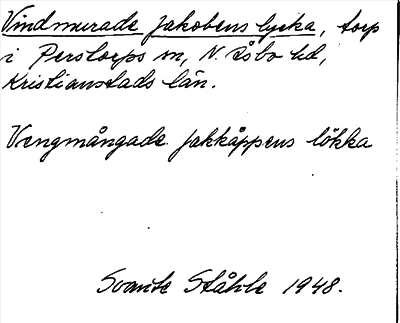 Vindmurade Jakobens lycka, torp
i Perstorps sn, N. Åsbo hd,
Kristianstads län.
Vengmångade jakkåppens lökka
Svante Ståhle 1948.